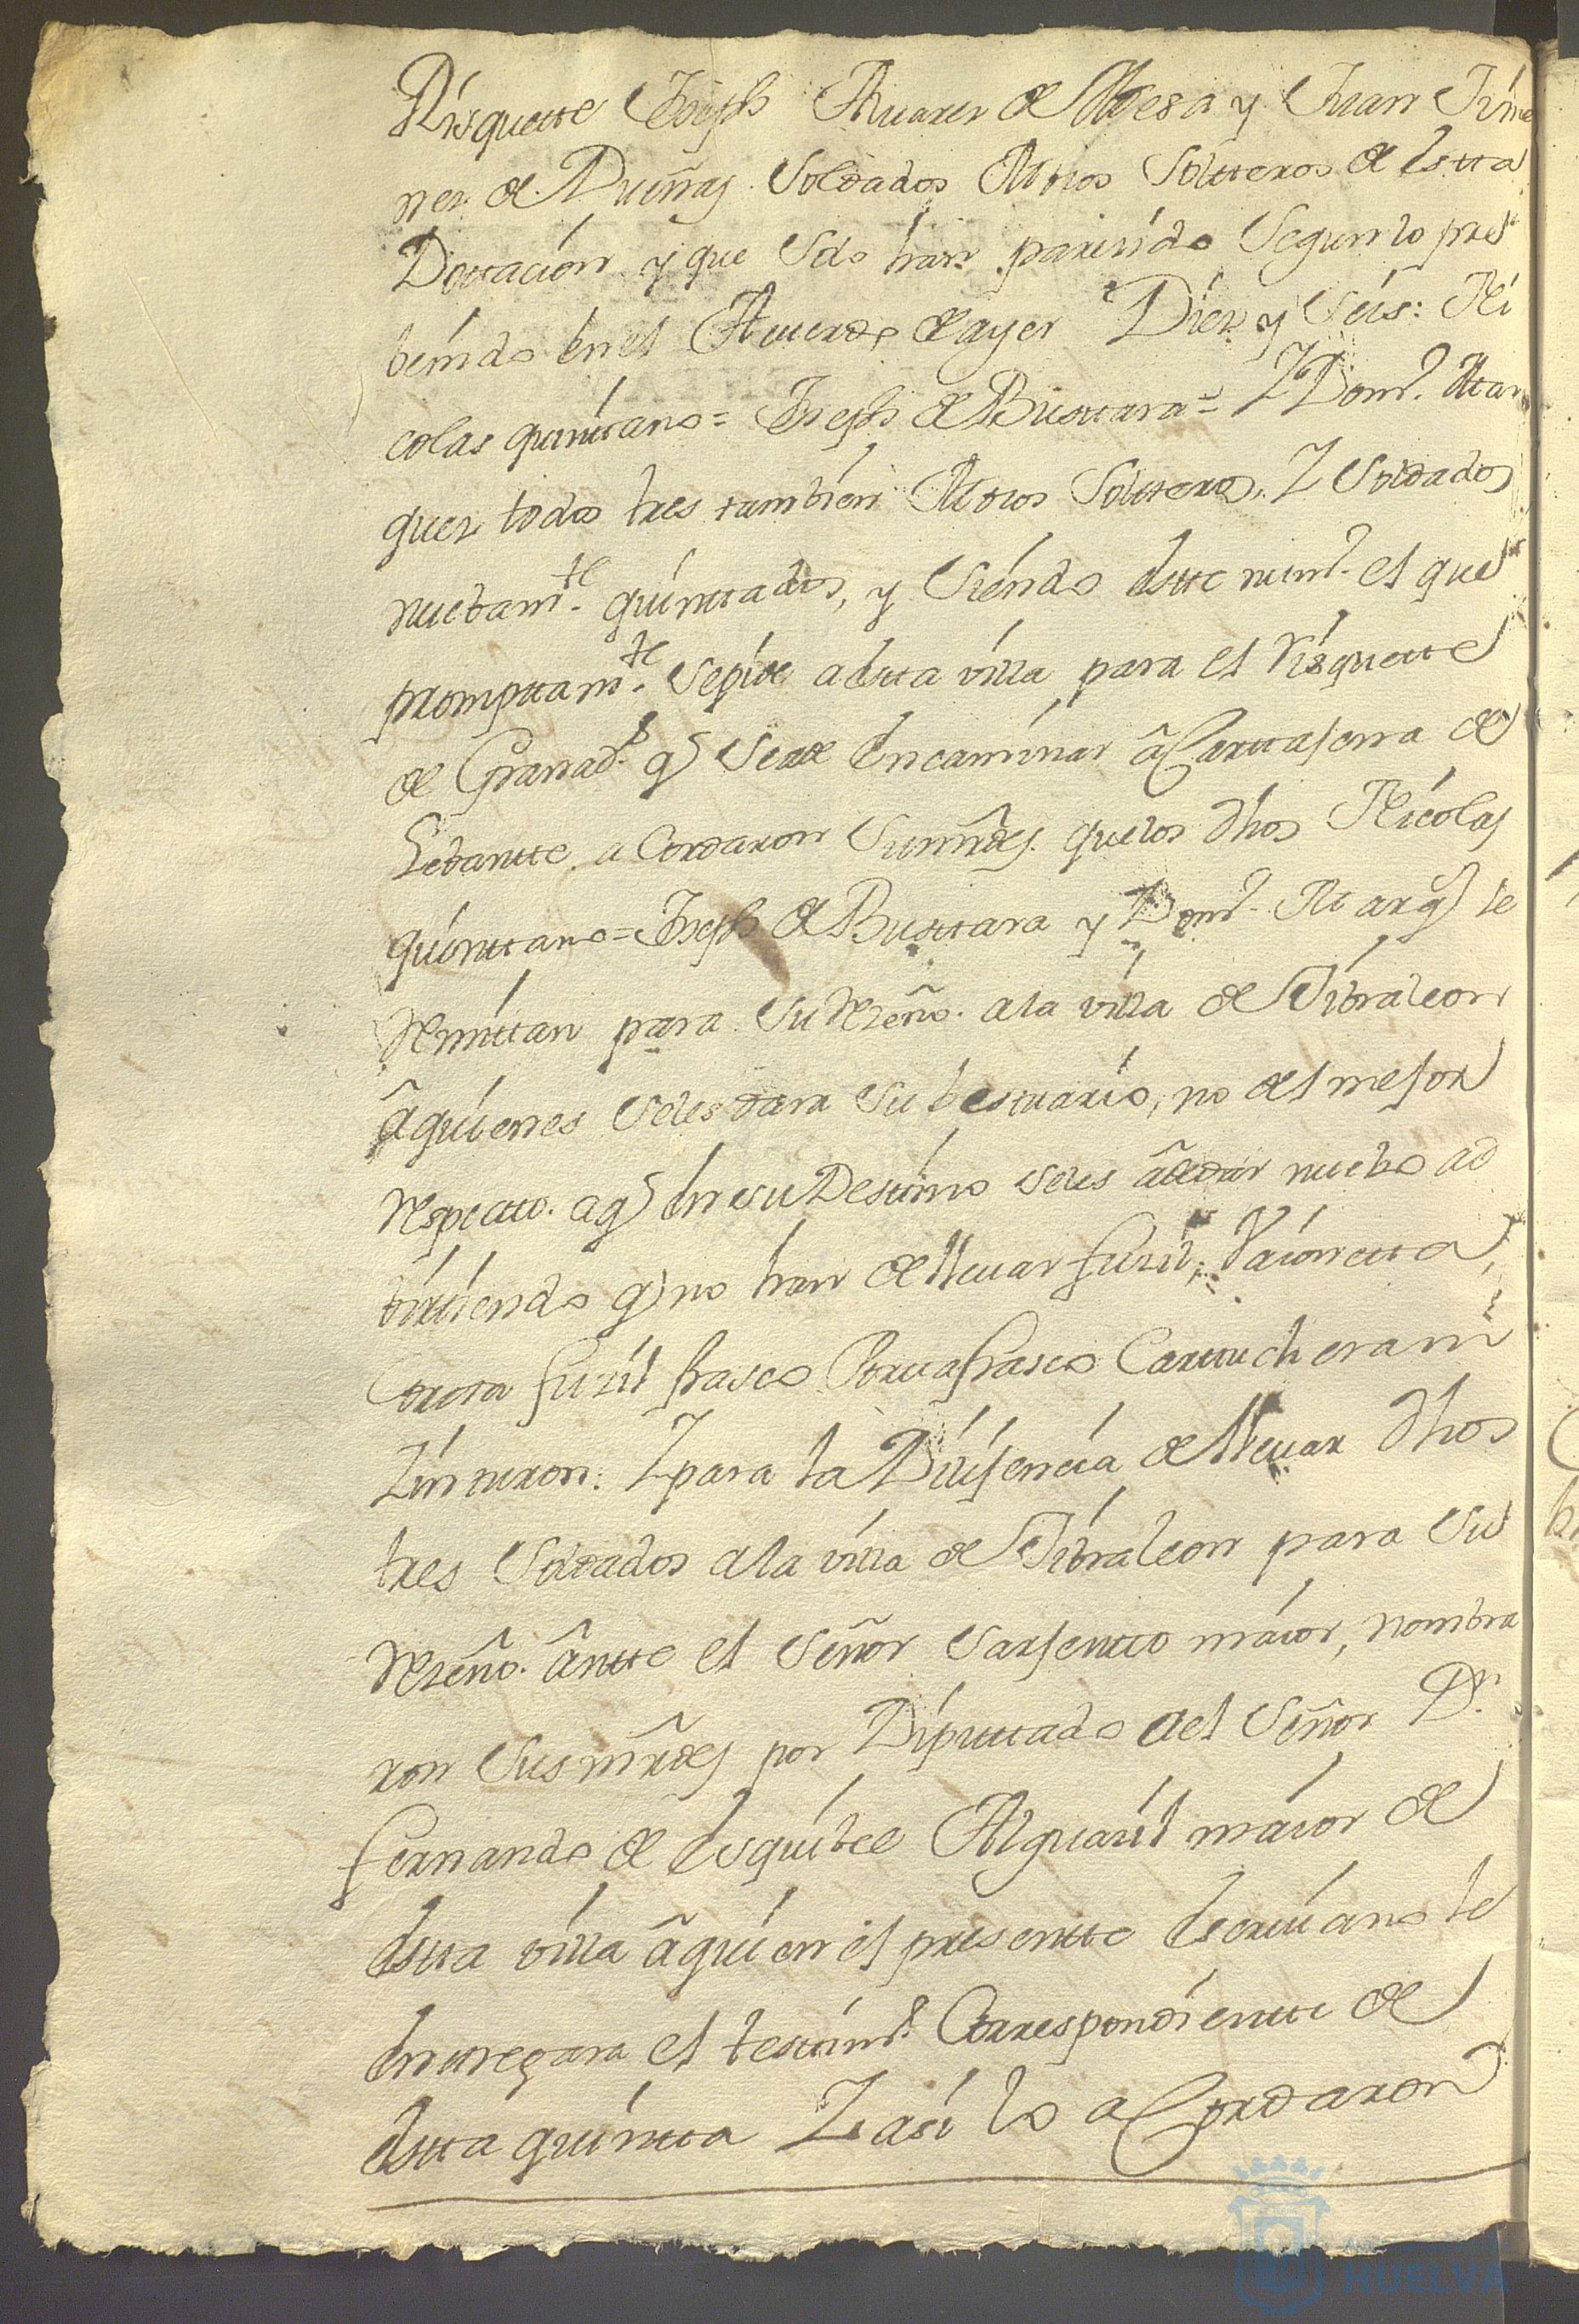 Risquette Joseph Aluarez de Mesa y Juan Jime
nez de Dueñas Soldados Mozos Soltteros de Estta
Dottacion y que Solo han parezido Segun lo pre
benido en el Acuerdo de ayer Diez y Seis: Ni
colas quinttano = Joseph de Busttara = Y Dom.º Mar
quez todos tres tambien Mozos Soltteros, Y Soldados
nuebam.te quinttados, y Siendo estte num.º el que
promptam.te Sepide a estta villa para el Risquette
de Granad.s q Sea de Encaminar â Carttajena de
Lebantte acordaron Sus mrdes. que los dhos Nicolas
quinttano = Joseph de Busttara y Dom.º Marq.z se
Remittan para Su Rezeño. a la villa de Jibraleon
â quienes Seles dara Su bestuario, no del mejor
respectto. a q en su Destino Seles â de dar nuebo ad
birtiendo q no han de lleuar fuzil, Vaionetta,
Cortta fuzil frasco Porttafrasco Carttuchera ni
Zinturon: Y para la Dilijencia de lleuar dhos
tres Soldados a la villa de Jibraleon para Su
Rezeño. ântte el Señor Sarjentto maior, nombra
ron Sus mrdes por Diputtado a el Señor D.n
fernando de Esquibel Alguazil maior de
Estta villa â quien el presentte Escriuano le
Enttregara el testtim.º Correspondientte de
Estta quintta Y asi lo acordaron
HUELVA